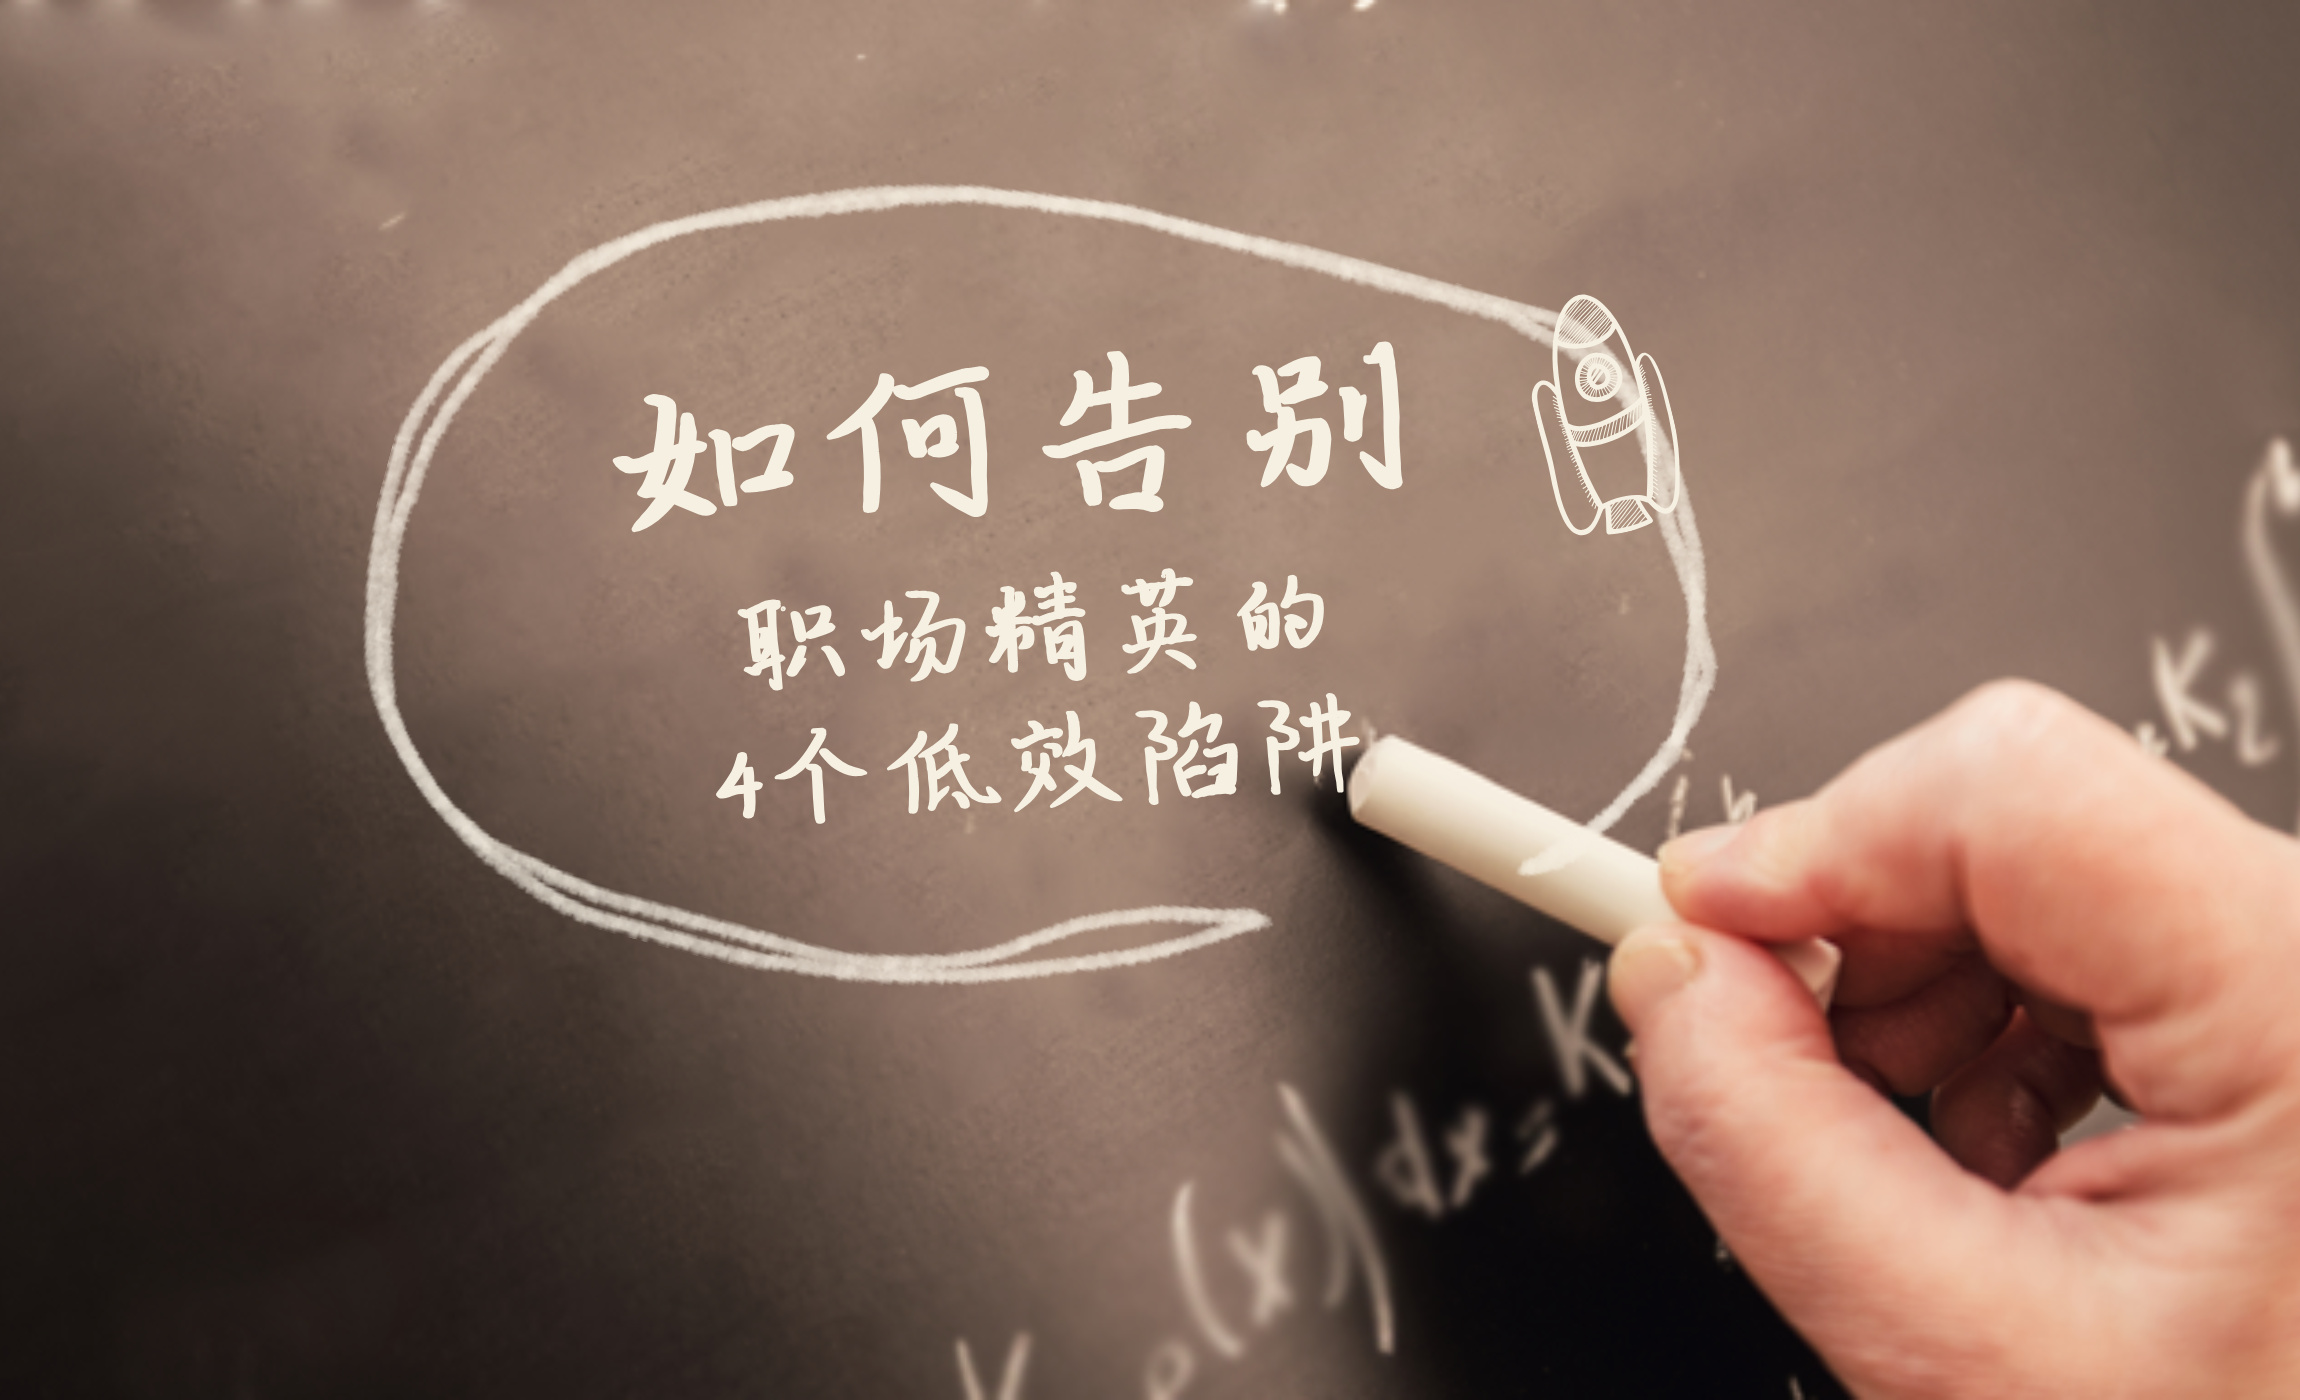 如何告别
职场精英的
4个低效陷阱
K2
K
dx=
(x)